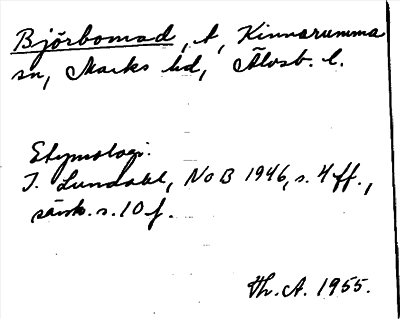 Björbomad, t, Kinnarumma
sn, Marks hd, Älvsb. l.
Etymologi:
I. Lundahl, NoB 1946, s. 4 ff.,
särsk. s. 10 f.
Th. A. 1955.